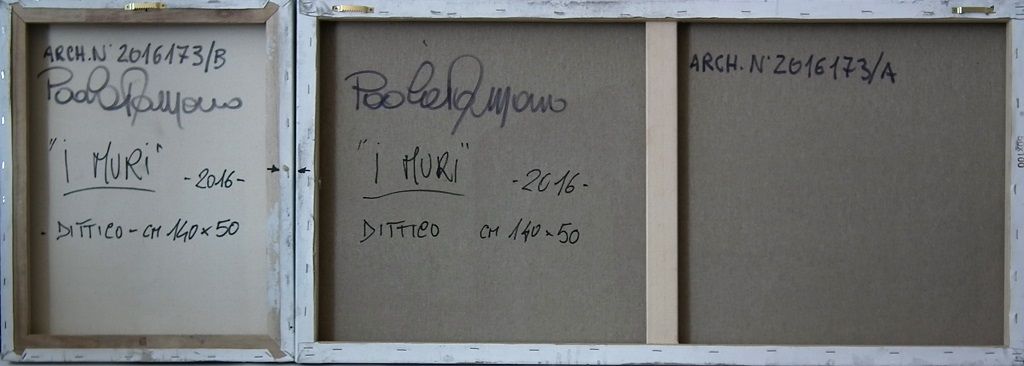 ARCH. N° 2016173/B
Paola Romano
"I MURI"
-2016-
- DITTICO - CM 140 x 50
Paola Romano
"I MURI"
-2016-
DITTICO CM 140 x 50
ARCH. N° 2016173/A